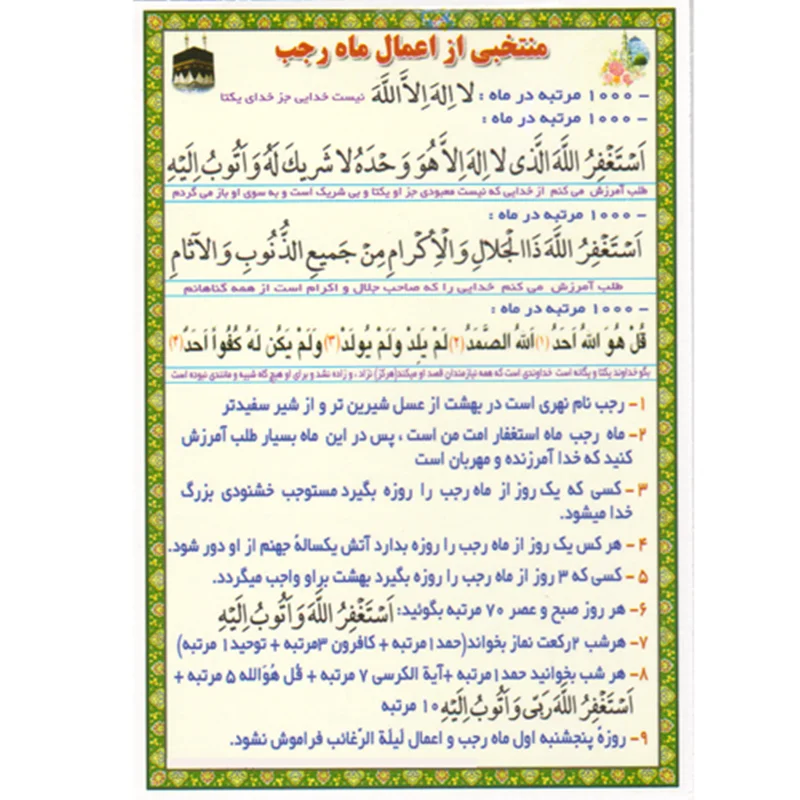 منتخبی از اعمال ماه رجب
- ۱۰۰۰ مرتبه در ماه : لا اِلهَ اِلاَّ اللَّهَ نیست خدایی جز خدای یکتا
- ۱۰۰۰ مرتبه در ماه :
اَسْتَغْفِرُ اللَّهَ الَّذی لا اِلهَ اِلاَّ هُوَ وَحْدَهُ لا شَریكَ لَهُ وَ اَتُوبُ اِلَیْهِ
طلب آمرزش می کنم از خدایی که نیست معبودی جز او یکتا و بی شریک است و به سوی او باز می گردم
- ۱۰۰۰ مرتبه در ماه :
اَسْتَغْفِرُ اللَّهَ ذَا الْجَلالِ وَ الْاِکْرامِ مِنْ جَمیعِ الذُّنُوبِ وَ الآثامِ
طلب آمرزش می کنم خدایی را که صاحب جلال و اکرام است از همه گناهانم
- ۱۰۰۰ مرتبه در ماه :
قُلْ هُوَ اللهُ اَحَدٌ (۱) اَللهُ الصَّمَدُ (۲) لَمْ یَلِدْ وَلَمْ یُولَدْ (۳) وَلَمْ یَکُن لَهُ کُفُواً اَحَدٌ (۴)
بگو خداوند یکتا و یگانه است خداوندی است که همه نیازمندان قصد او میکند(هرگز) نزاد ، و زاده نشد و برای او هیچ گاه شبیه و مانندی نبوده است
۱- رجب نام نهری است در بهشت از عسل شیرین تر و از شیر سفیدتر
۲- ماه رجب ماه استغفار امت من است ، پس در این ماه بسیار طلب آمرزش
کنید که خدا آمرزنده و مهربان است
۳- کسی که یک روز از ماه رجب را روزه بگیرد مستوجب خشنودی بزرگ
خدا میشود.
۴- هر کس یک روز از ماه رجب را روزه بدارد آتش یکسالهٔ جهنم از او دور شود.
۵- کسی که ۳ روز از ماه رجب را روزه بگیرد بهشت براو واجب میگردد.
۶- هر روز صبح و عصر ۷۰ مرتبه بگوئید: اَسْتَغْفِرُ اللَّهَ وَ اَتُوبُ اِلَیْهِ
۷- هرشب ۲رکعت نماز بخواند(حمد۱مرتبه + کافرون ۳مرتبه + توحید۱ مرتبه)
۸- هر شب بخوانید حمد۱مرتبه +آیة الکرسی ۷ مرتبه + قُل هُوَالله ۵ مرتبه +
اَسْتَغْفِرُ اللَّهَ رَبّی وَ اَتُوبُ اِلَیْهِ ۱۰ مرتبه
۹- روزهٔ پنجشنبه اول ماه رجب و اعمال لَیلَة الرَّغائب فراموش نشود.